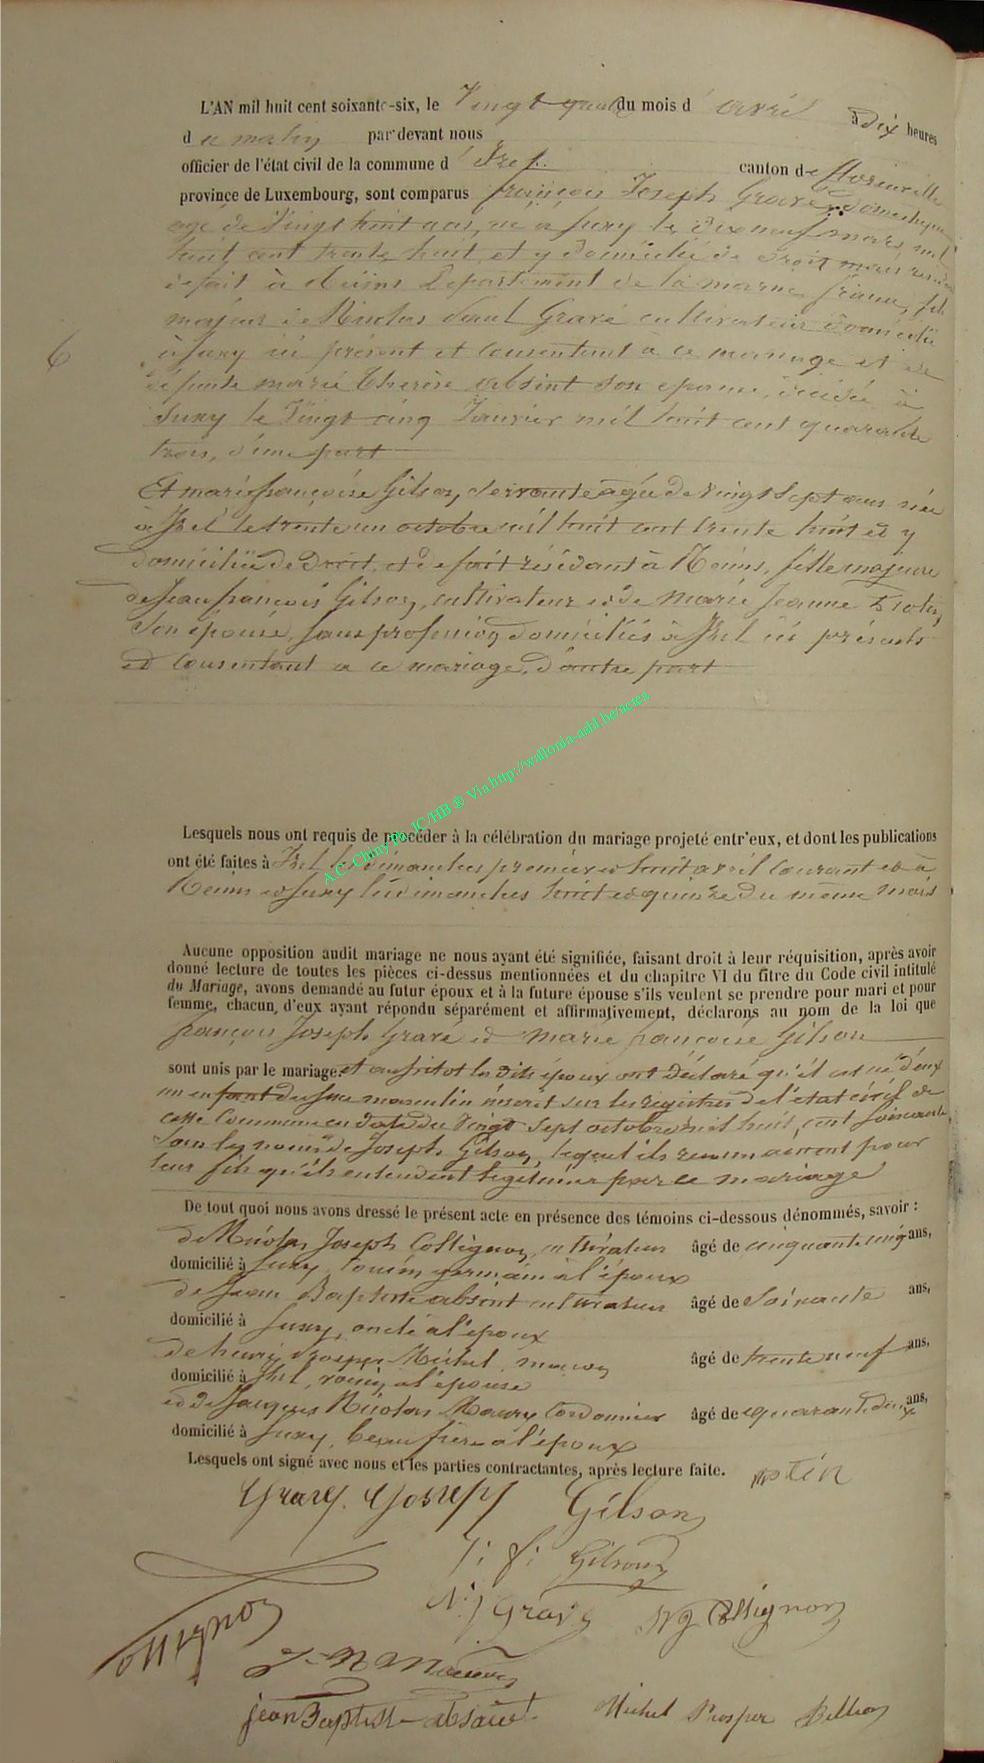 L'AN mil huit cent soixante-six, le Vingt quatre du mois d'avril à dix heures
du matin par devant nous
officier de l'état civil de la commune d'Izel canton de Florenville
province de Luxembourg, sont comparus françois Joseph Gravé, domestique
agé de Vingt huit ans, né à Suxy le dix neuf mars mil
huit cent trente huit et y domicilié de droit mais
de fait à Reims Département de la marne france, fils
majeur de Nicolas Paul Gravé cultivateur domicilié
à Suxy ici présent et consentant à ce mariage et de
défunte marie Thérèse absint son épouse, décédée à
Suxy le Vingt cinq Janvier mil huit cent quarante
trois, d'une part
6
Et marie françoise Gilson, servante agée de vingt sept ans née
à Izel le trente un octobre mil huit cent trente huit et y
domiciliée de Droit, et de fait résidant à Reims, fille majeure
de Jean françois Gilson, cultivateur et de Marie Jeanne
Son épouse, sans profession domiciliés à Izel ici présents
et consentant à ce mariage, d'autre part
AC-Chiny Ph. JC/HB ® Via http://wallonia-asbl.be/actes
Lesquels nous ont requis de procéder à la célébration du mariage projeté entr'eux, et dont les publications
ont été faites à Izel les dimanches premier et huit avril courant et à
Reims et Suxy les dimanches huit et quinze du même mois
Aucune opposition audit mariage ne nous ayant été signifiée, faisant droit à leur réquisition, après avoir
donné lecture de toutes les pièces ci-dessus mentionnées et du chapitre VI du titre du Code civil intitulé
du Mariage, avons demandé au futur époux et à la future épouse s'ils veulent se prendre pour mari et pour
femme, chacun d'eux ayant répondu séparément et affirmativement, déclarons au nom de la loi que
françois Joseph Gravé et marie françoise Gilson
sont unis par le mariage. et aussitot les dits époux ont déclaré qu'il est né d'eux
un enfant du sexe masculin inscrit sur les registres de l'état civil de
cette Commune en date du Vingt Sept octobre mil huit cent soixante
sous les noms de Joseph Gilson, lequel ils reconnaissent pour
leur fils qu'ils entendent légitimer par ce mariage
De tout quoi nous avons dressé le présent acte en présence des témoins ci-dessous dénommés, savoir :
de Nicolas Joseph Collignon, cultivateur âgé de cinquante cinq ans,
domicilié à Suxy, Cousin germain à l'époux
de Jean Baptiste absint cultivateur âgé de Soixante ans,
domicilié à Suxy, oncle à l'époux
de henri Prosper Michel, maçon âgé de trente neuf ans,
domicilié à Izel, voisin à l'épouse
et de Jacques Nicolas Maury Cordonnier âgé de quarante deux ans,
domicilié à Suxy, beau frère à l'époux
Lesquels ont signé avec nous et les parties contractantes, après lecture faite.
Gravé Joseph Gilson
J: f: Gilson
N: J Gravé N J Collignon
Collignon
J N Maury
jean Baptiste absint Michel Prosper